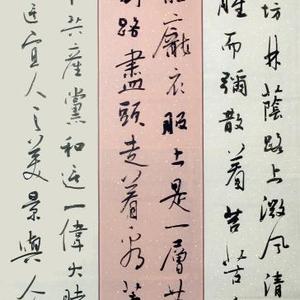 坊林蔭路上微風清
而彌散着苦
龐衣服上是一層
路盡頭走着
共產黨和這一偉大時
宜人之美景與人